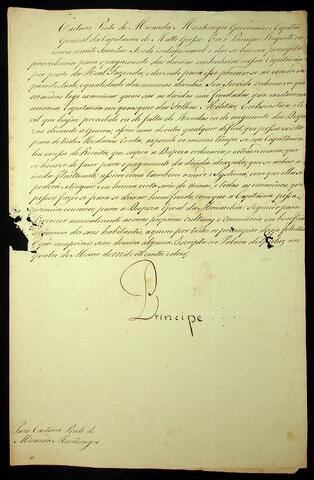 Caetano Pinto de Miranda Montenegro Governador e Capitão
General da Capitania de Matto Grosso. Eu o Principe Regente vos
envio muito Saudar. Sendo indispensavel o dar se huma prompta
providencia para o pagamento das dividas contrahidas nessa Capitania
por parte da Real Fazenda, e devendo para esse fim
quantidade, e qualidade das mesmas dividas: Sou Servido ordenar vos que
mandeis logo examinar quaes são as dividas não fundadas, que existem na
mesma Capitania em quaesquer das Folhas Militar, Ecclesiastica, e Ci-
vil que hajão procedido ou de falta de Rendas ou de augmento das Despe-
zas durante a Guerra; assim como de outro qualquer deficit, que possa existir
e de tudo Me dareis Conta, expondo ao mesmo tempo se na Capitania
ha excesso de Receita, que supra a Despeza ordinaria, e extraordinaria que
se houver de fazer para o pagamento da divida atrazada, que se achar a
inda fluctuante, assim como tambem o meio e Systema, com que Mais
poderá extinguir em huma certa serie de annos, e todas as economias, que
possão fazer se para se deixar hum fundo, com que a Capitania possa
concorrer, para a Despeza Geral da Monarchia: Seguindo para
annualmente as suas proprias Culturas e Commercio em beneficio
commum dos seus habitantes, a quem por todos os principios desejo felicitar.
O que cumprireis sem demora alguma. Escripta no Palacio de Queluz aos
quatro de Março de mil oito centos e dois
Principe
Para Caetano Pinto de
Miranda Montenegro